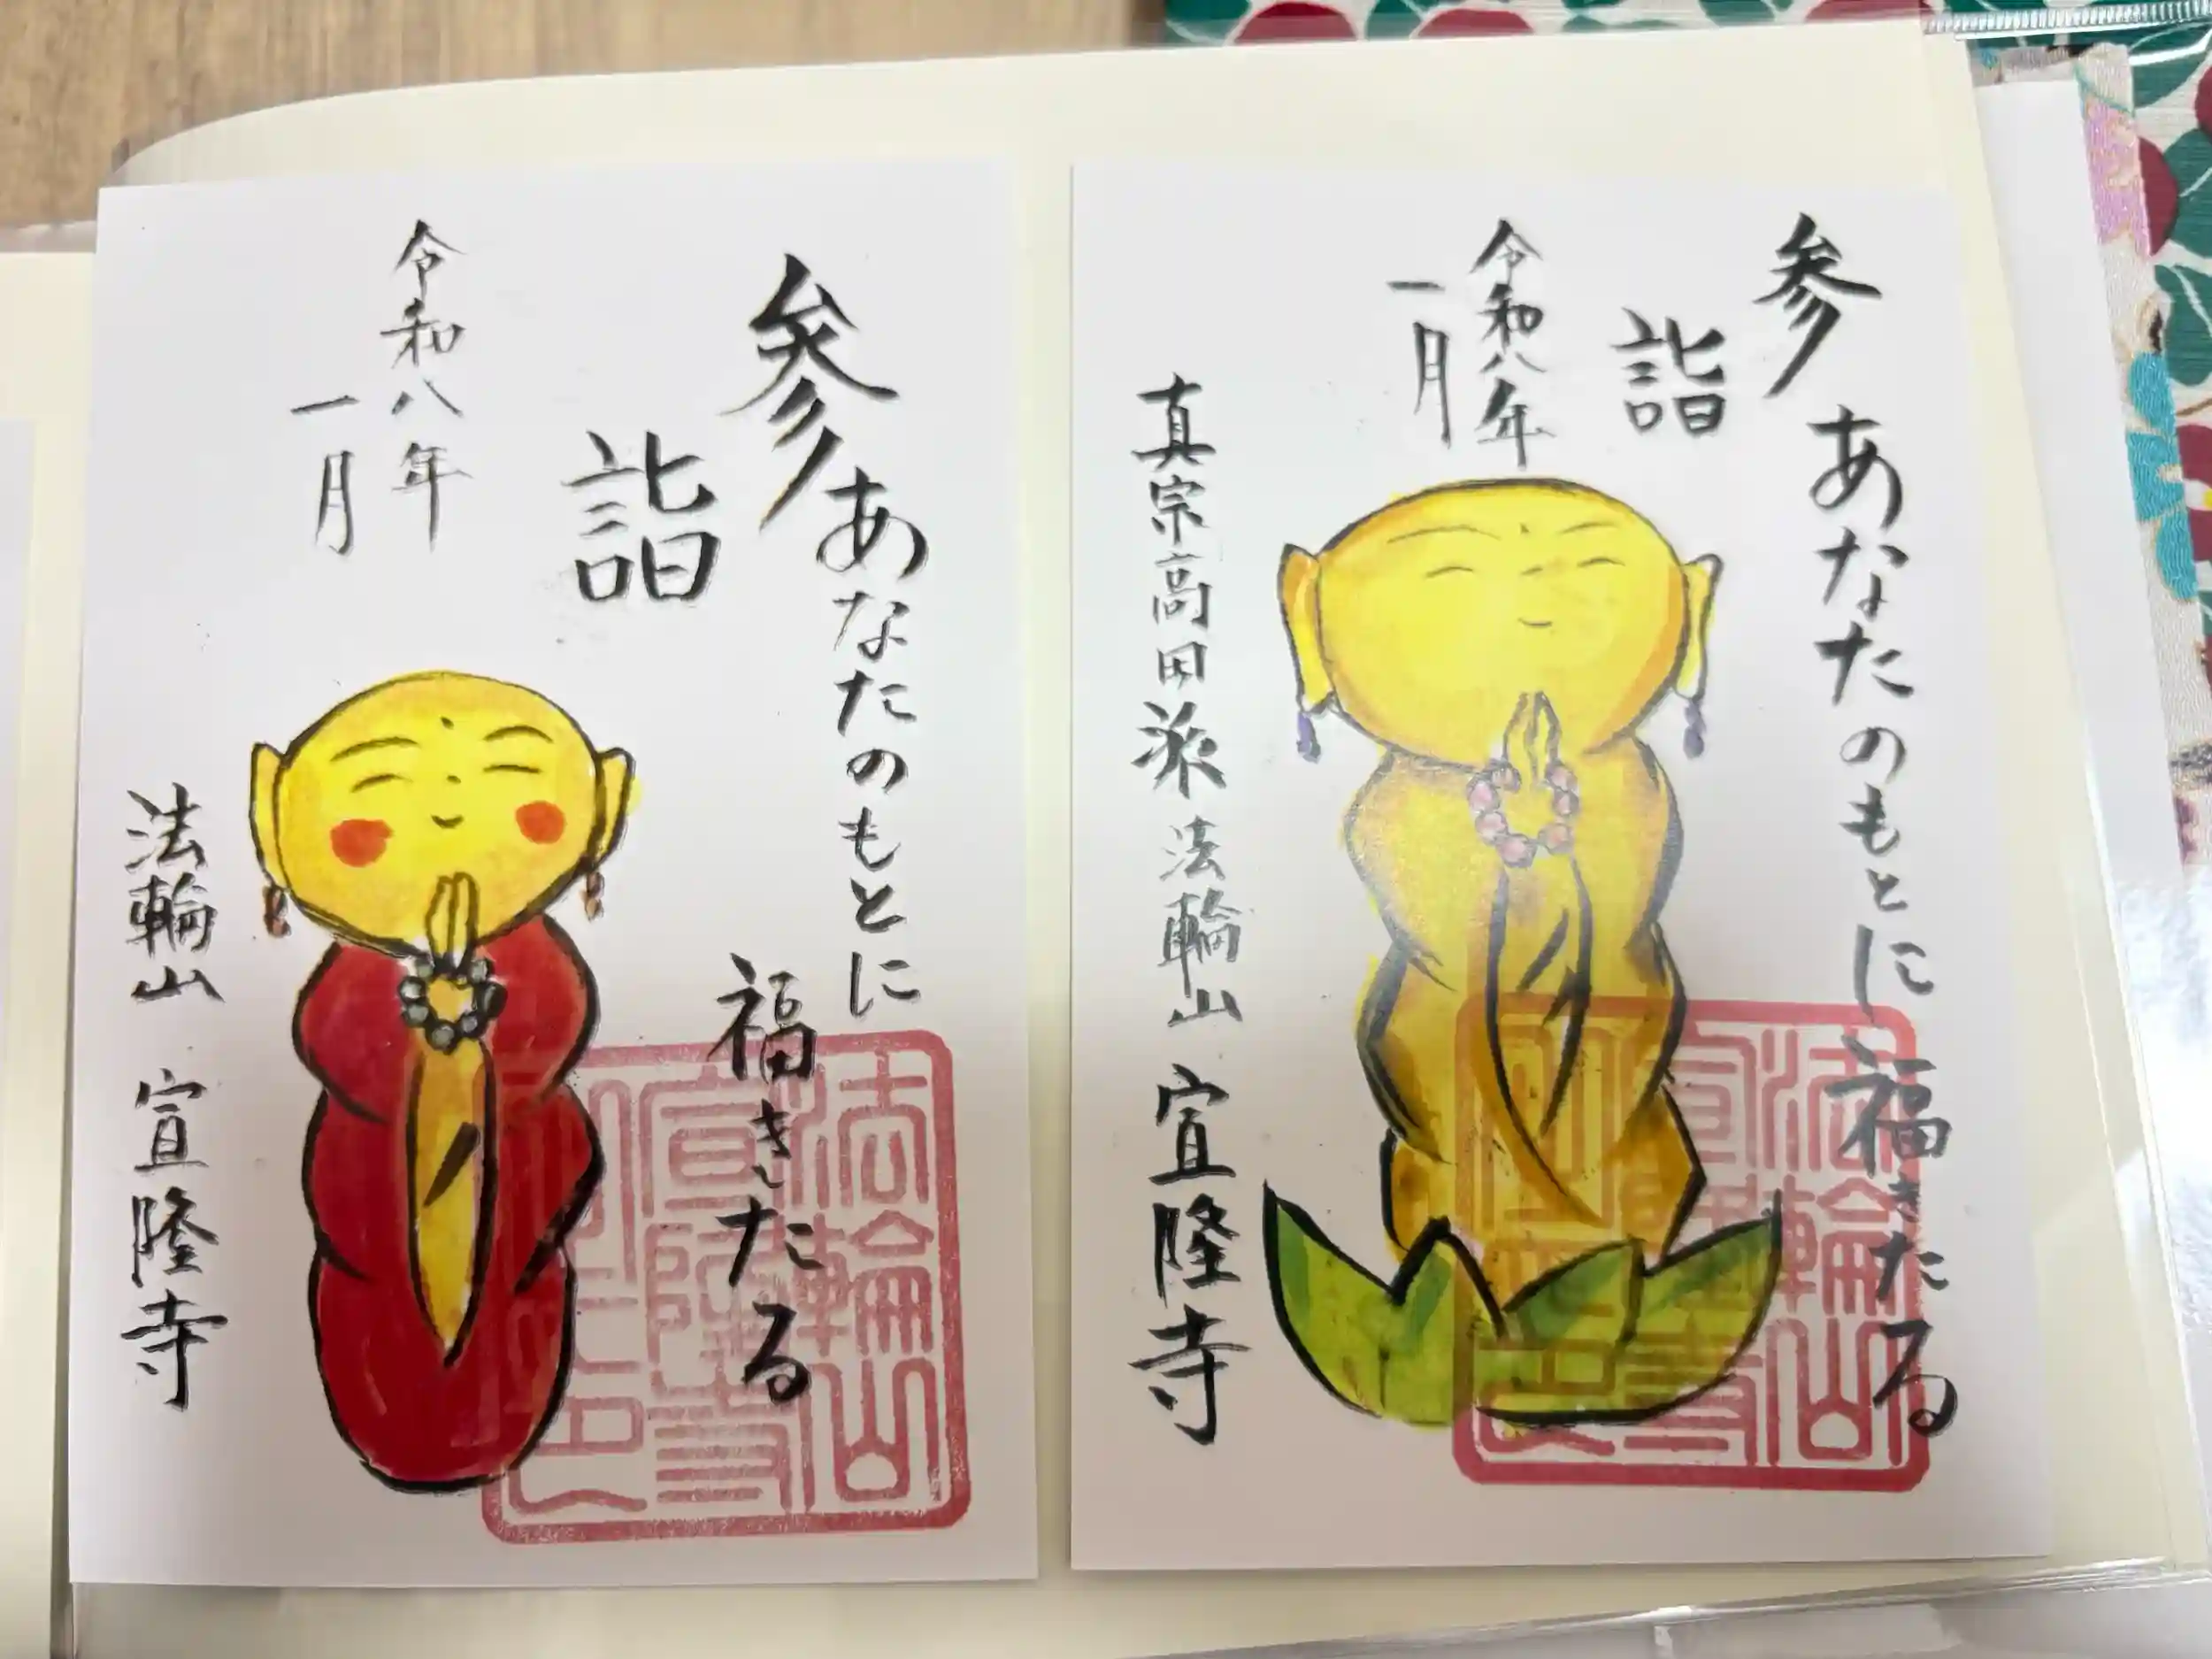 参詣
あなたのもとに
福きたる
令和八年
一月
法輪山 宣隆寺
法輪山
宣隆寺
参詣
あなたのもとに福きたる
令和八年
一月
真宗高田派 法輪山 宣隆寺
法輪山